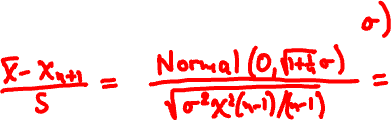 σ)
x̄ - x_{n+1} / S = Normal(0, √(1+1/n) σ) / √(σ² χ²(n-1)/(n-1)) =